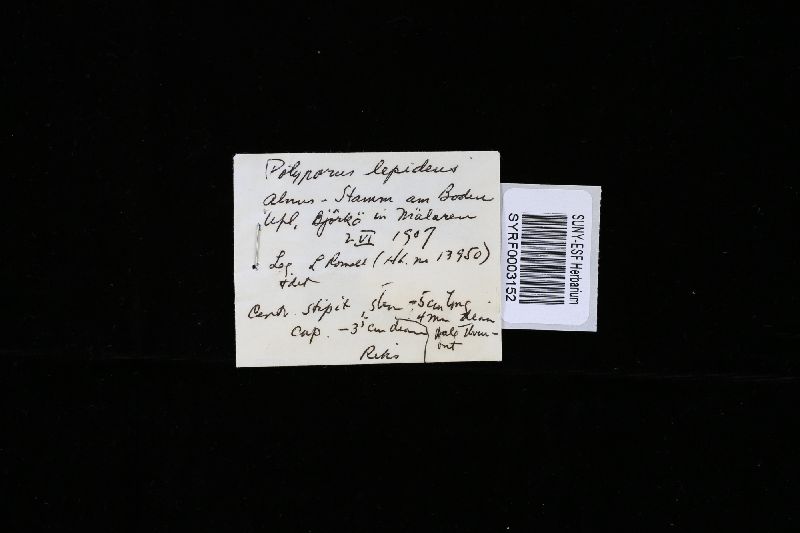 Polyporus lepideus
Alnus - Stamm am Boden
Upl. Björkö in Mälaren
2 VI 1907
Leg. L Romell (Hb. no 13950)
+ det
Centr. stipit, stem -5 cm long
4 mm diam
cap. -3 cm diam pale brown-
Riks
SUNY-ESF Herbarium
SYRF0003152